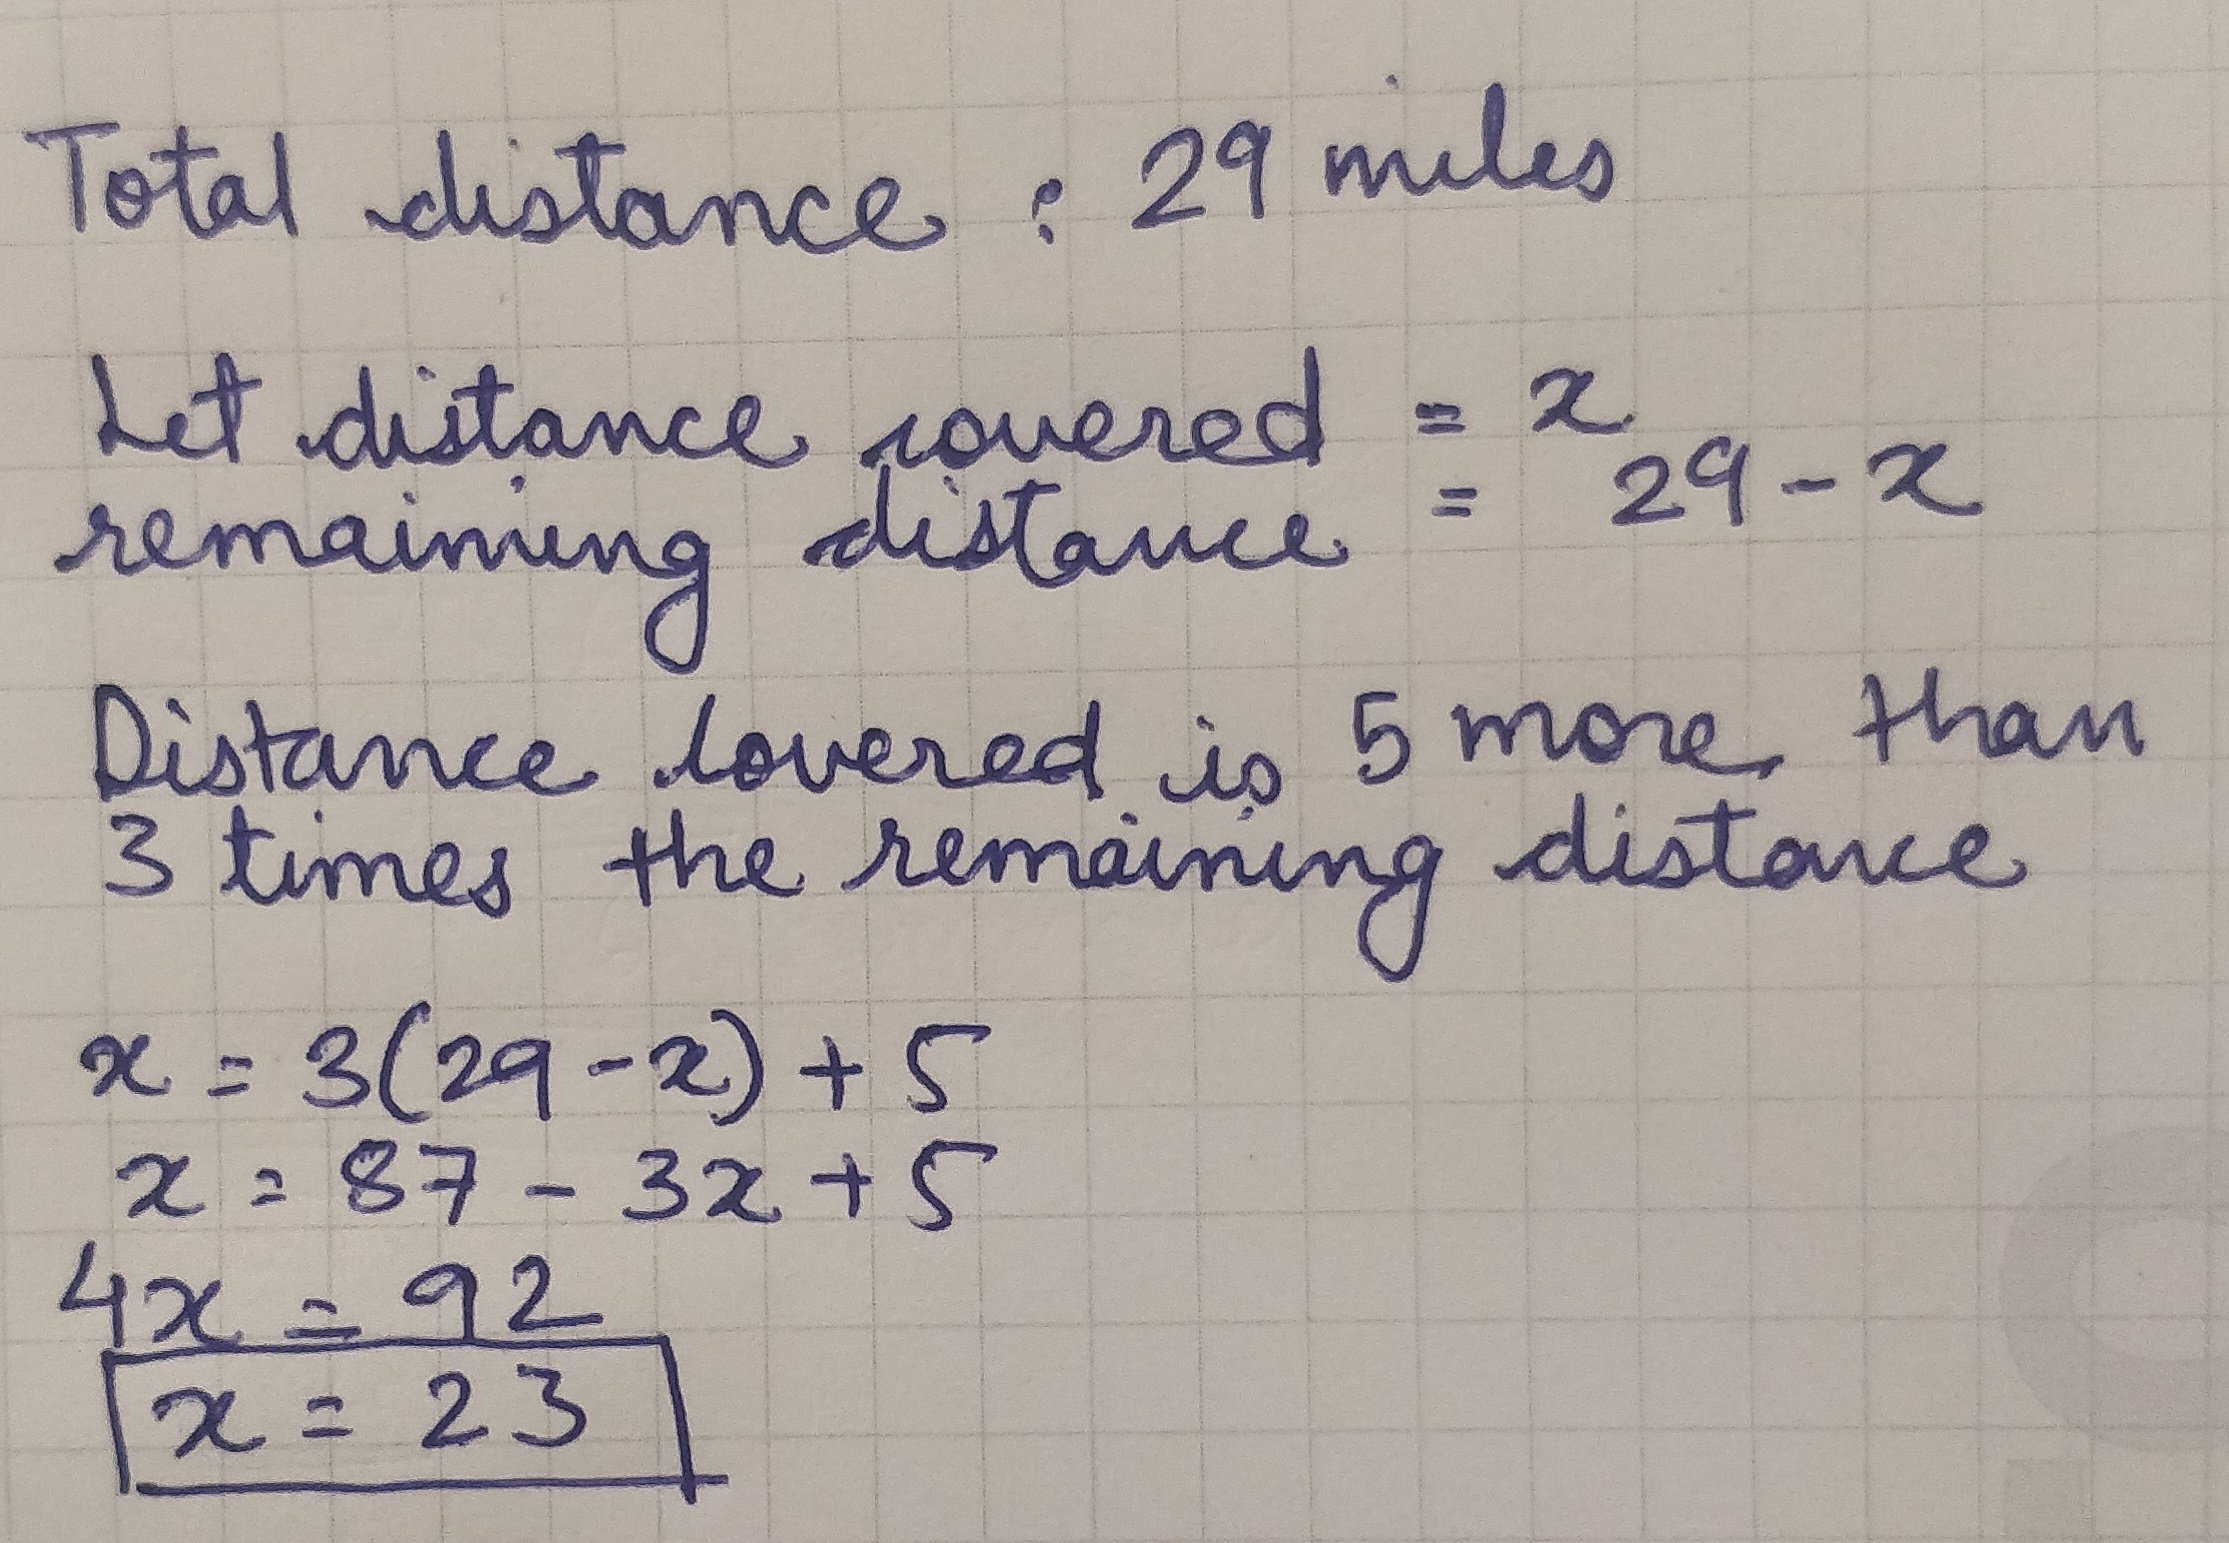 Total distance : 29 miles
Let distance covered = x
remaining distance = 29 - x
Distance covered is 5 more than
3 times the remaining distance
x = 3(29 - x) + 5
x = 87 - 3x + 5
4x = 92
x = 23